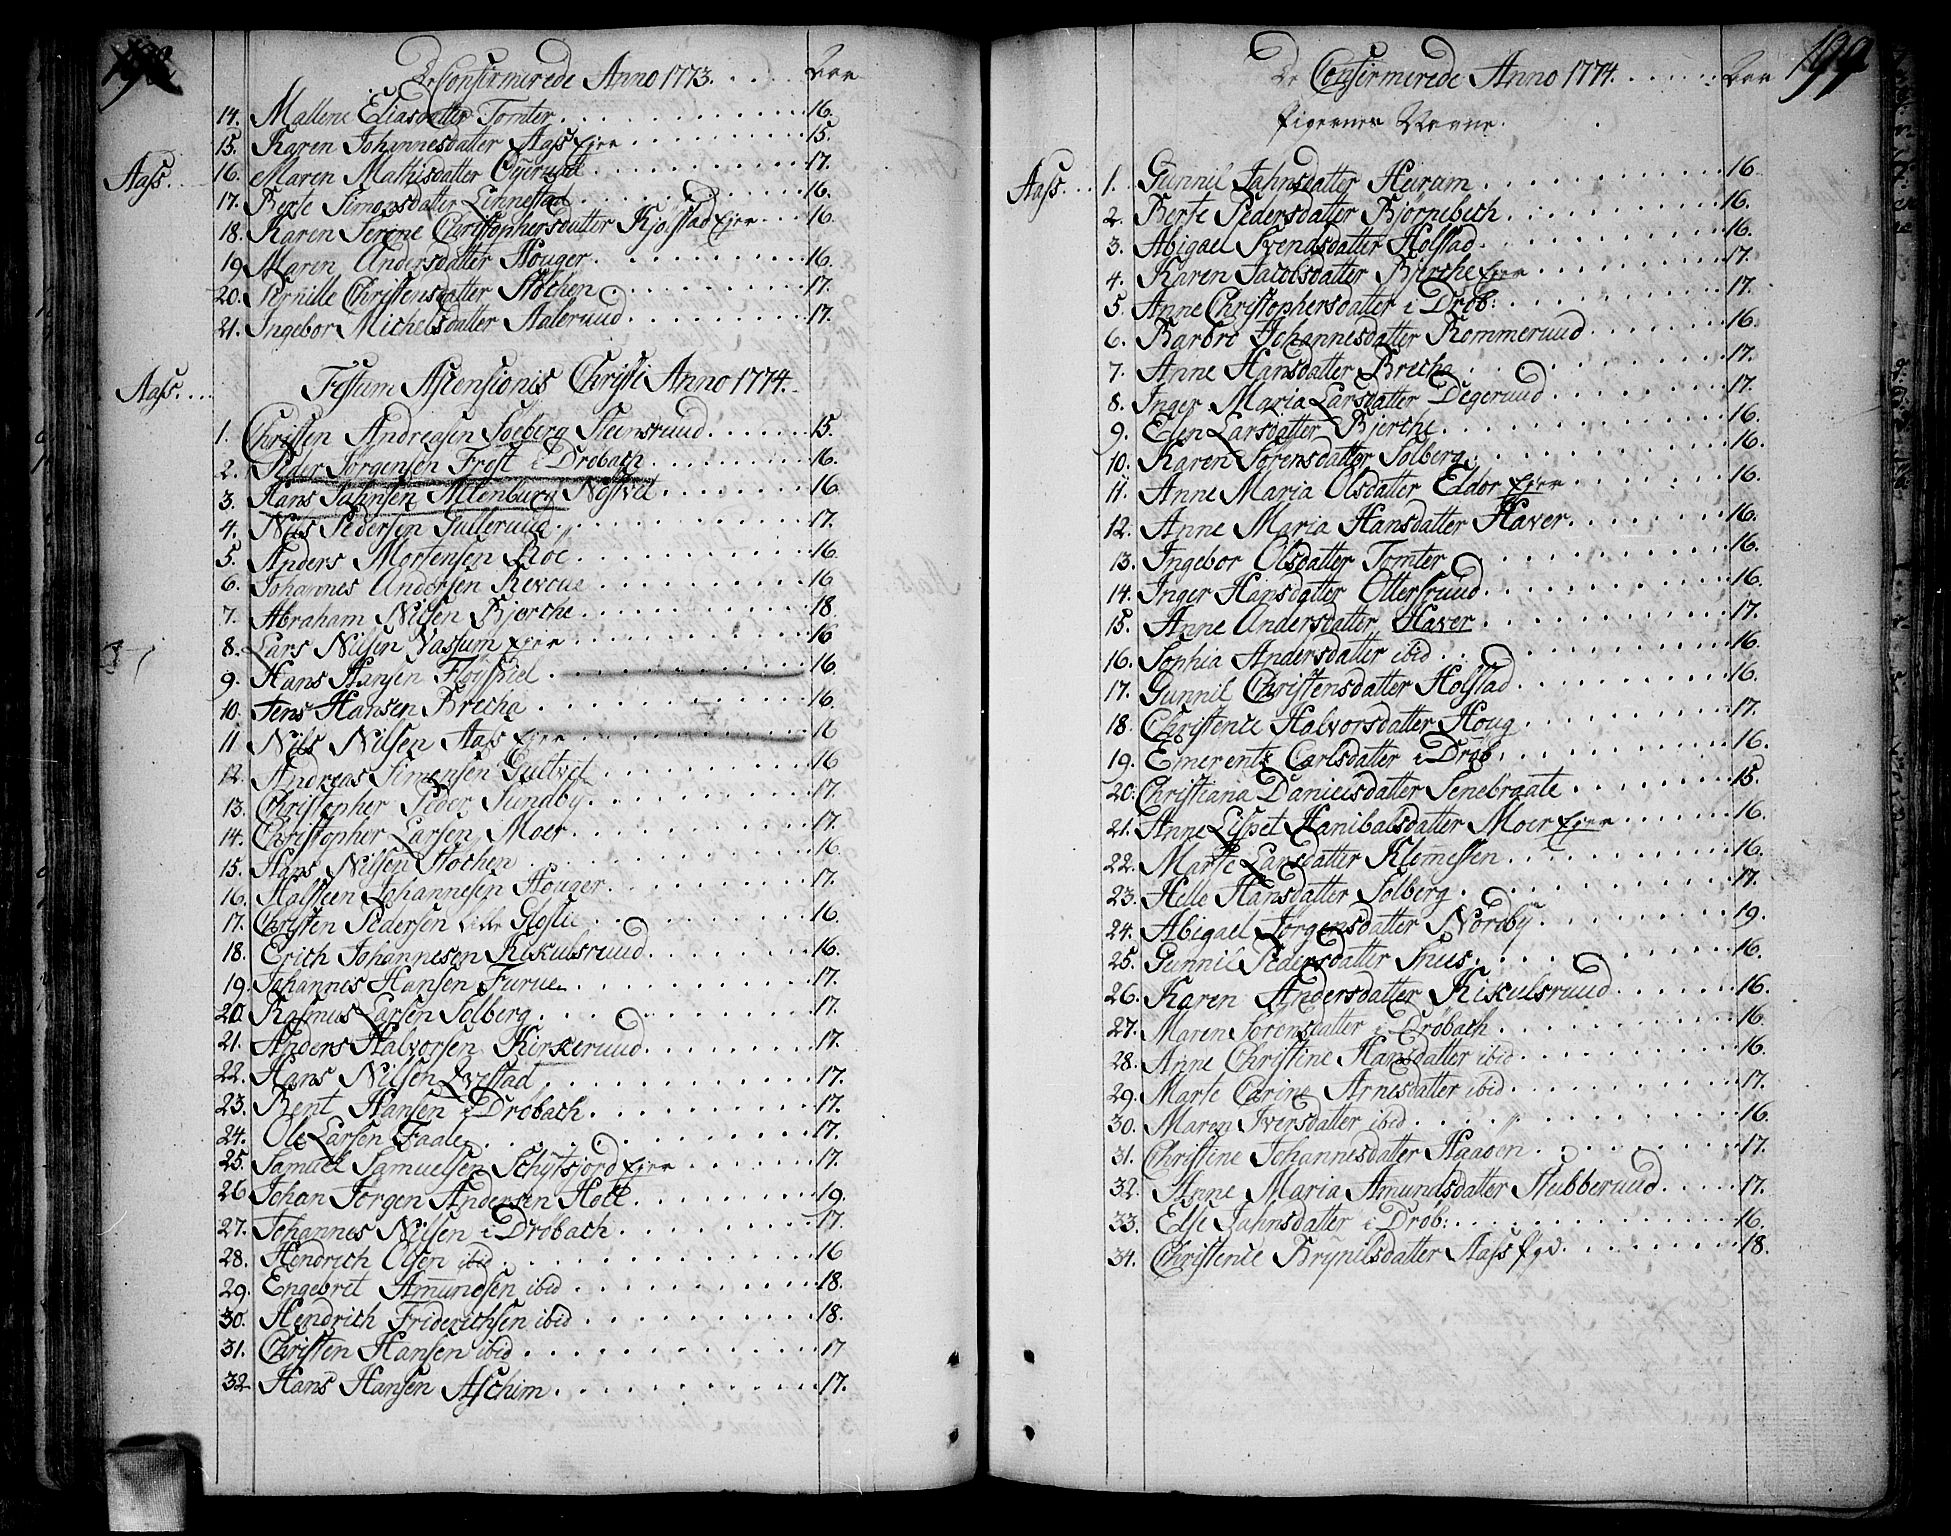 De Confirmerede Anno 1773. Aar
14. Mallene Eliasdatter Tomter 16.
15. Karen Johannesdatter Aass Ejer 15.
Aass. 16. Maren Mathisdatter 17.
17. Berte Simonsdatter Linnestad 16.
18. Karen Serene Christophersdatter Kjølstad Ejer 16.
19. Maren Andersdatter Houger 16.
20. Pernille Christensdatter Støchen 17.
21. Ingebor Michelsdatter Aaleruud 17.
Aass. Festum Ascensionis Christi Anno 1774.
1. Christen Andreasen Soeberg Steensruud 15.
2. Peder Jörgensen Frost i Dröbach 16.
3. Hans Jahnsen Altenburg Nostvet 16.
4. Nils Pedersen Gulleruud 17.
5. Anders Mortensen Röe 16.
6. Johannes Andersen Revoue 16
7. Abraham Nilsen Bjerche 18.
8. Lars Nilsen Vassum Ejer 16
9. Hans Hansen Flöjspiel 16.
10. Jens Hansen Brecha 16.
11 Nils Nilsen Aass Ejer 16
12. Andreas Simensen Gultvet 16
13. Christopher Peder Sundby 17.
14. Christopher Larsen Moer 17.
15. Hans Nilsen Støchen 16.
16. Halsteen Johannesen Houger 17.
17. Christen Pedersen Lille Glostie 16.
18. Erich Johannesen Kikulsruud 16.
19. Johannes Hansen Furue 17.
20. Rasmus Larsen Solberg 17.
21. Anders Halvorsen Kirkeruud 17.
22. Hans Nilsen Qvestad 17.
23. Bent Hansen i Dröbach 17.
24. Ole Larsen Faale 17.
25. Samuel Samuelsen Schytsjord Ejer 17.
26. Johan Jörgen Andersen Holt 19.
27. Johannes Nilsen i Dröbach 17.
28. Hendrich Olsen ibid 16
29. Engebret Amundsen ibid 18.
30. Hendrich Friderichsen ibid 18.
31. Christen Hansen ibid 17
32. Hans Hansen Aschim 17.
199
De Confirmerede Anno 1774. Aar
Pigernes Navne.
Aass. 1. Gunnil Jahnsdatter Heiram 16
2. Berte Pedersdatter Bjørnebech 16.
3. Abigael Svendsdatter Holstad 16.
4. Karen Jacobsdatter Bjerche Ejer 17.
5. Anne Christophersdatter i Dröb: 17.
6. Barbro Johannesdatter Rommeruud 16.
7. Anne Hansdatter Brecha 17.
8. Inger Maria Larsdatter Degeruud 17.
9. Elen Larsdatter Bjerche 16.
10. Karen Sörensdatter Solberg 16.
11. Anne Maria Olsdatter Eldor Ejer 16.
12. Anne Maria Hansdatter Haver 16.
13. Ingebor Olsdatter Tomter 16.
14. Inger Hansdatter Ottersruud 16.
15. Anne Andersdatter Haver 17.
16. Sophia Andersdatter ibid 16.
17. Gunnil Christensdatter Holstad 16.
18. Christence Halvorsdatter Houg 17.
19. Emerents Carlsdatter i Dröb. 16.
20. Christiana Danielsdatter Senebraate 15.
21. Anne Lispet Hanibalsdatter Moer Ejer 16.
22. Marte Larsdatter Klemessen 16.
23. Helle Hansdatter Solberg 17.
24. Abigael Jörgensdatter Nordby 19.
25. Gunnil Pedersdatter Snees 16.
26. Karen Andersdatter Kikulsruud 16.
27. Maren Sörensdatter i Dröbach 16.
28. Anne Christine Hansdatter ibid 16.
29. Marte Carine Arnesdatter ibid 17.
30. Maren Iversdatter ibid 16.
31. Christine Johannesdatter Haaden 17.
32. Anne Maria Amundsdatter Stubberuud 17.
33. Else Jahnsdatter i Dröb: 16.
34. Christence Brynilsdatter Aass Egd. 18.